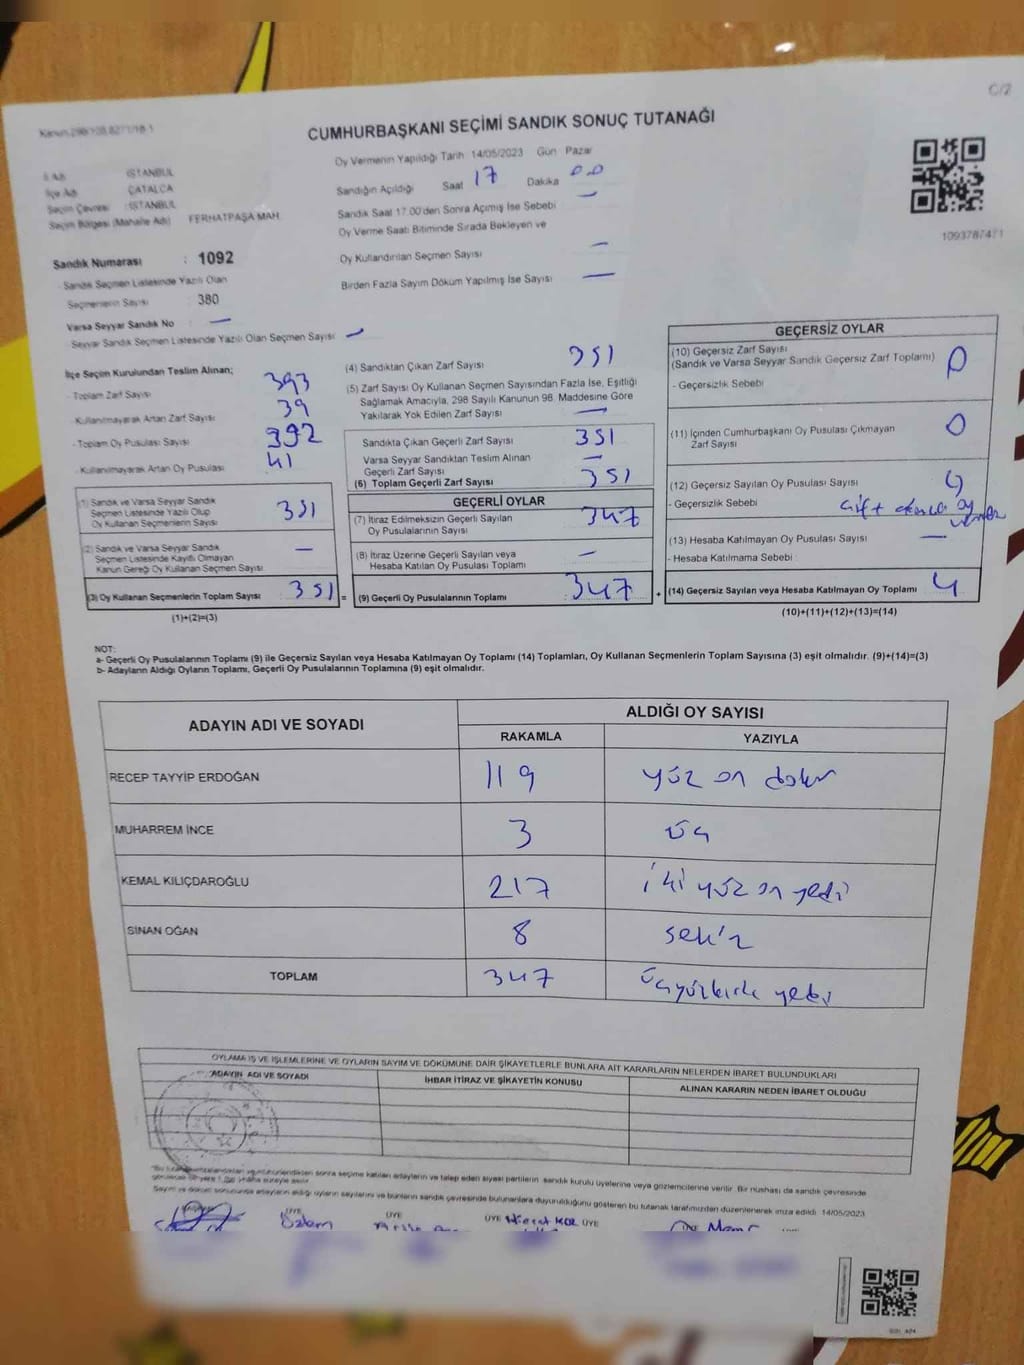 C/2
Kanun 298/105,8271/16-1
CUMHURBAŞKANI SEÇİMİ SANDIK SONUÇ TUTANAĞI
Oy Vermenin Yapıldığı Tarih 14/05/2023 Gün Pazar
İl Adı : İSTANBUL
İlçe Adı : ÇATALCA
Seçim Çevresi : İSTANBUL
Seçim Bölgesi (Mahalle Adı) FERHATPAŞA MAH.
Sandığın Açıldığı Saat 17 Dakika 00
Sandık Saat 17.00'den Sonra Açımış İse Sebebi —
Oy Verme Saati Bitiminde Sırada Bekleyen ve
Oy Kullandırılan Seçmen Sayısı —
Birden Fazla Sayım Döküm Yapılmış İse Sayısı —
1093787471
Sandık Numarası : 1092
- Sandık Seçmen Listesinde Yazılı Olan
Seçmenlerin Sayısı : 380
Varsa Seyyar Sandık No : —
- Seyyar Sandık Seçmen Listesinde Yazılı Olan Seçmen Sayısı : —
İlçe Seçim Kurulundan Teslim Alınan;
- Toplam Zarf Sayısı 393
- Kullanılmayarak Artan Zarf Sayısı 39
- Toplam Oy Pusulası Sayısı 392
- Kullanılmayarak Artan Oy Pusulası 41
(1) Sandık ve Varsa Seyyar Sandık
Seçmen Listesinde Yazılı Olup
Oy Kullanan Seçmenlerin Sayısı 351
(2) Sandık ve Varsa Seyyar Sandık
Seçmen Listesinde Kayıtlı Olmayan
Kanun Gereği Oy Kullanan Seçmen Sayısı —
(3) Oy Kullanan Seçmenlerin Toplam Sayısı 351 =
(1)+(2)=(3)
(4) Sandıktan Çıkan Zarf Sayısı 351
(5) Zarf Sayısı Oy Kullanan Seçmen Sayısından Fazla İse, Eşitliği
Sağlamak Amacıyla, 298 Sayılı Kanunun 98. Maddesine Göre
Yakılarak Yok Edilen Zarf Sayısı —
Sandıkta Çıkan Geçerli Zarf Sayısı 351
Varsa Seyyar Sandıktan Teslim Alınan
Geçerli Zarf Sayısı —
(6) Toplam Geçerli Zarf Sayısı 351
GEÇERLİ OYLAR
(7) İtiraz Edilmeksizin Geçerli Sayılan
Oy Pusulasının Sayısı 347
(8) İtiraz Üzerine Geçerli Sayılan veya
Hesaba Katılan Oy Pusulası Toplamı —
(9) Geçerli Oy Pusulalarının Toplamı 347 +
GEÇERSİZ OYLAR
(10) Geçersiz Zarf Sayısı
(Sandık ve Varsa Seyyar Sandık Geçersiz Zarf Toplamı) 0
- Geçersizlik Sebebi
(11) İçinden Cumhurbaşkanı Oy Pusulası Çıkmayan
Zarf Sayısı 0
(12) Geçersiz Sayılan Oy Pusulası Sayısı 4
- Geçersizlik Sebebi çift oy
(13) Hesaba Katılmayan Oy Pusulası Sayısı —
- Hesaba Katılmama Sebebi
(14) Geçersiz Sayılan veya Hesaba Katılmayan Oy Toplamı 4
(10)+(11)+(12)+(13)=(14)
NOT:
a- Geçerli Oy Pusulalarının Toplamı (9) ile Geçersiz Sayılan veya Hesaba Katılmayan Oy Toplamı (14) Toplamları, Oy Kullanan Seçmenlerin Toplam Sayısına (3) eşit olmalıdır. (9)+(14)=(3)
b- Adayların Aldığı Oyların Toplamı, Geçerli Oy Pusulalarının Toplamına (9) eşit olmalıdır.
ADAYIN ADI VE SOYADI ALDIĞI OY SAYISI
RAKAMLA YAZIYLA
RECEP TAYYİP ERDOĞAN 119 yüz on dokuz
MUHARREM İNCE 3 üç
KEMAL KILIÇDAROĞLU 217 iki yüz on yedi
SİNAN OĞAN 8 sekiz
TOPLAM 347 üçyüzkırk yedi
OYLAMA İŞ VE İŞLEMLERİNE VE OYLARIN SAYIM VE DÖKÜMÜNE DAİR ŞİKAYETLERLE BUNLARA AİT KARARLARIN NELERDEN İBARET BULUNDUKLARI
ADAYIN ADI VE SOYADI İHBAR İTİRAZ VE ŞİKAYETİN KONUSU ALINAN KARARIN NEDEN İBARET OLDUĞU
sonra seçime katılan adayların ve talep eden siyasi partilerin sandık kurulu üyelerine veya gözlemcilerine verilir. Bir nüshası da sandık çevresinde
Sayım ve döküm sonucunda adayların aldığı oyların sayılarını ve bunların sandık çevresinde bulunanlara duyurulduğunu gösteren bu tutanak tarafımızdan düzenlenerek imza edildi. 14/05/2023
ÜYE ÜYE ÜYE ÜYE
Özlem